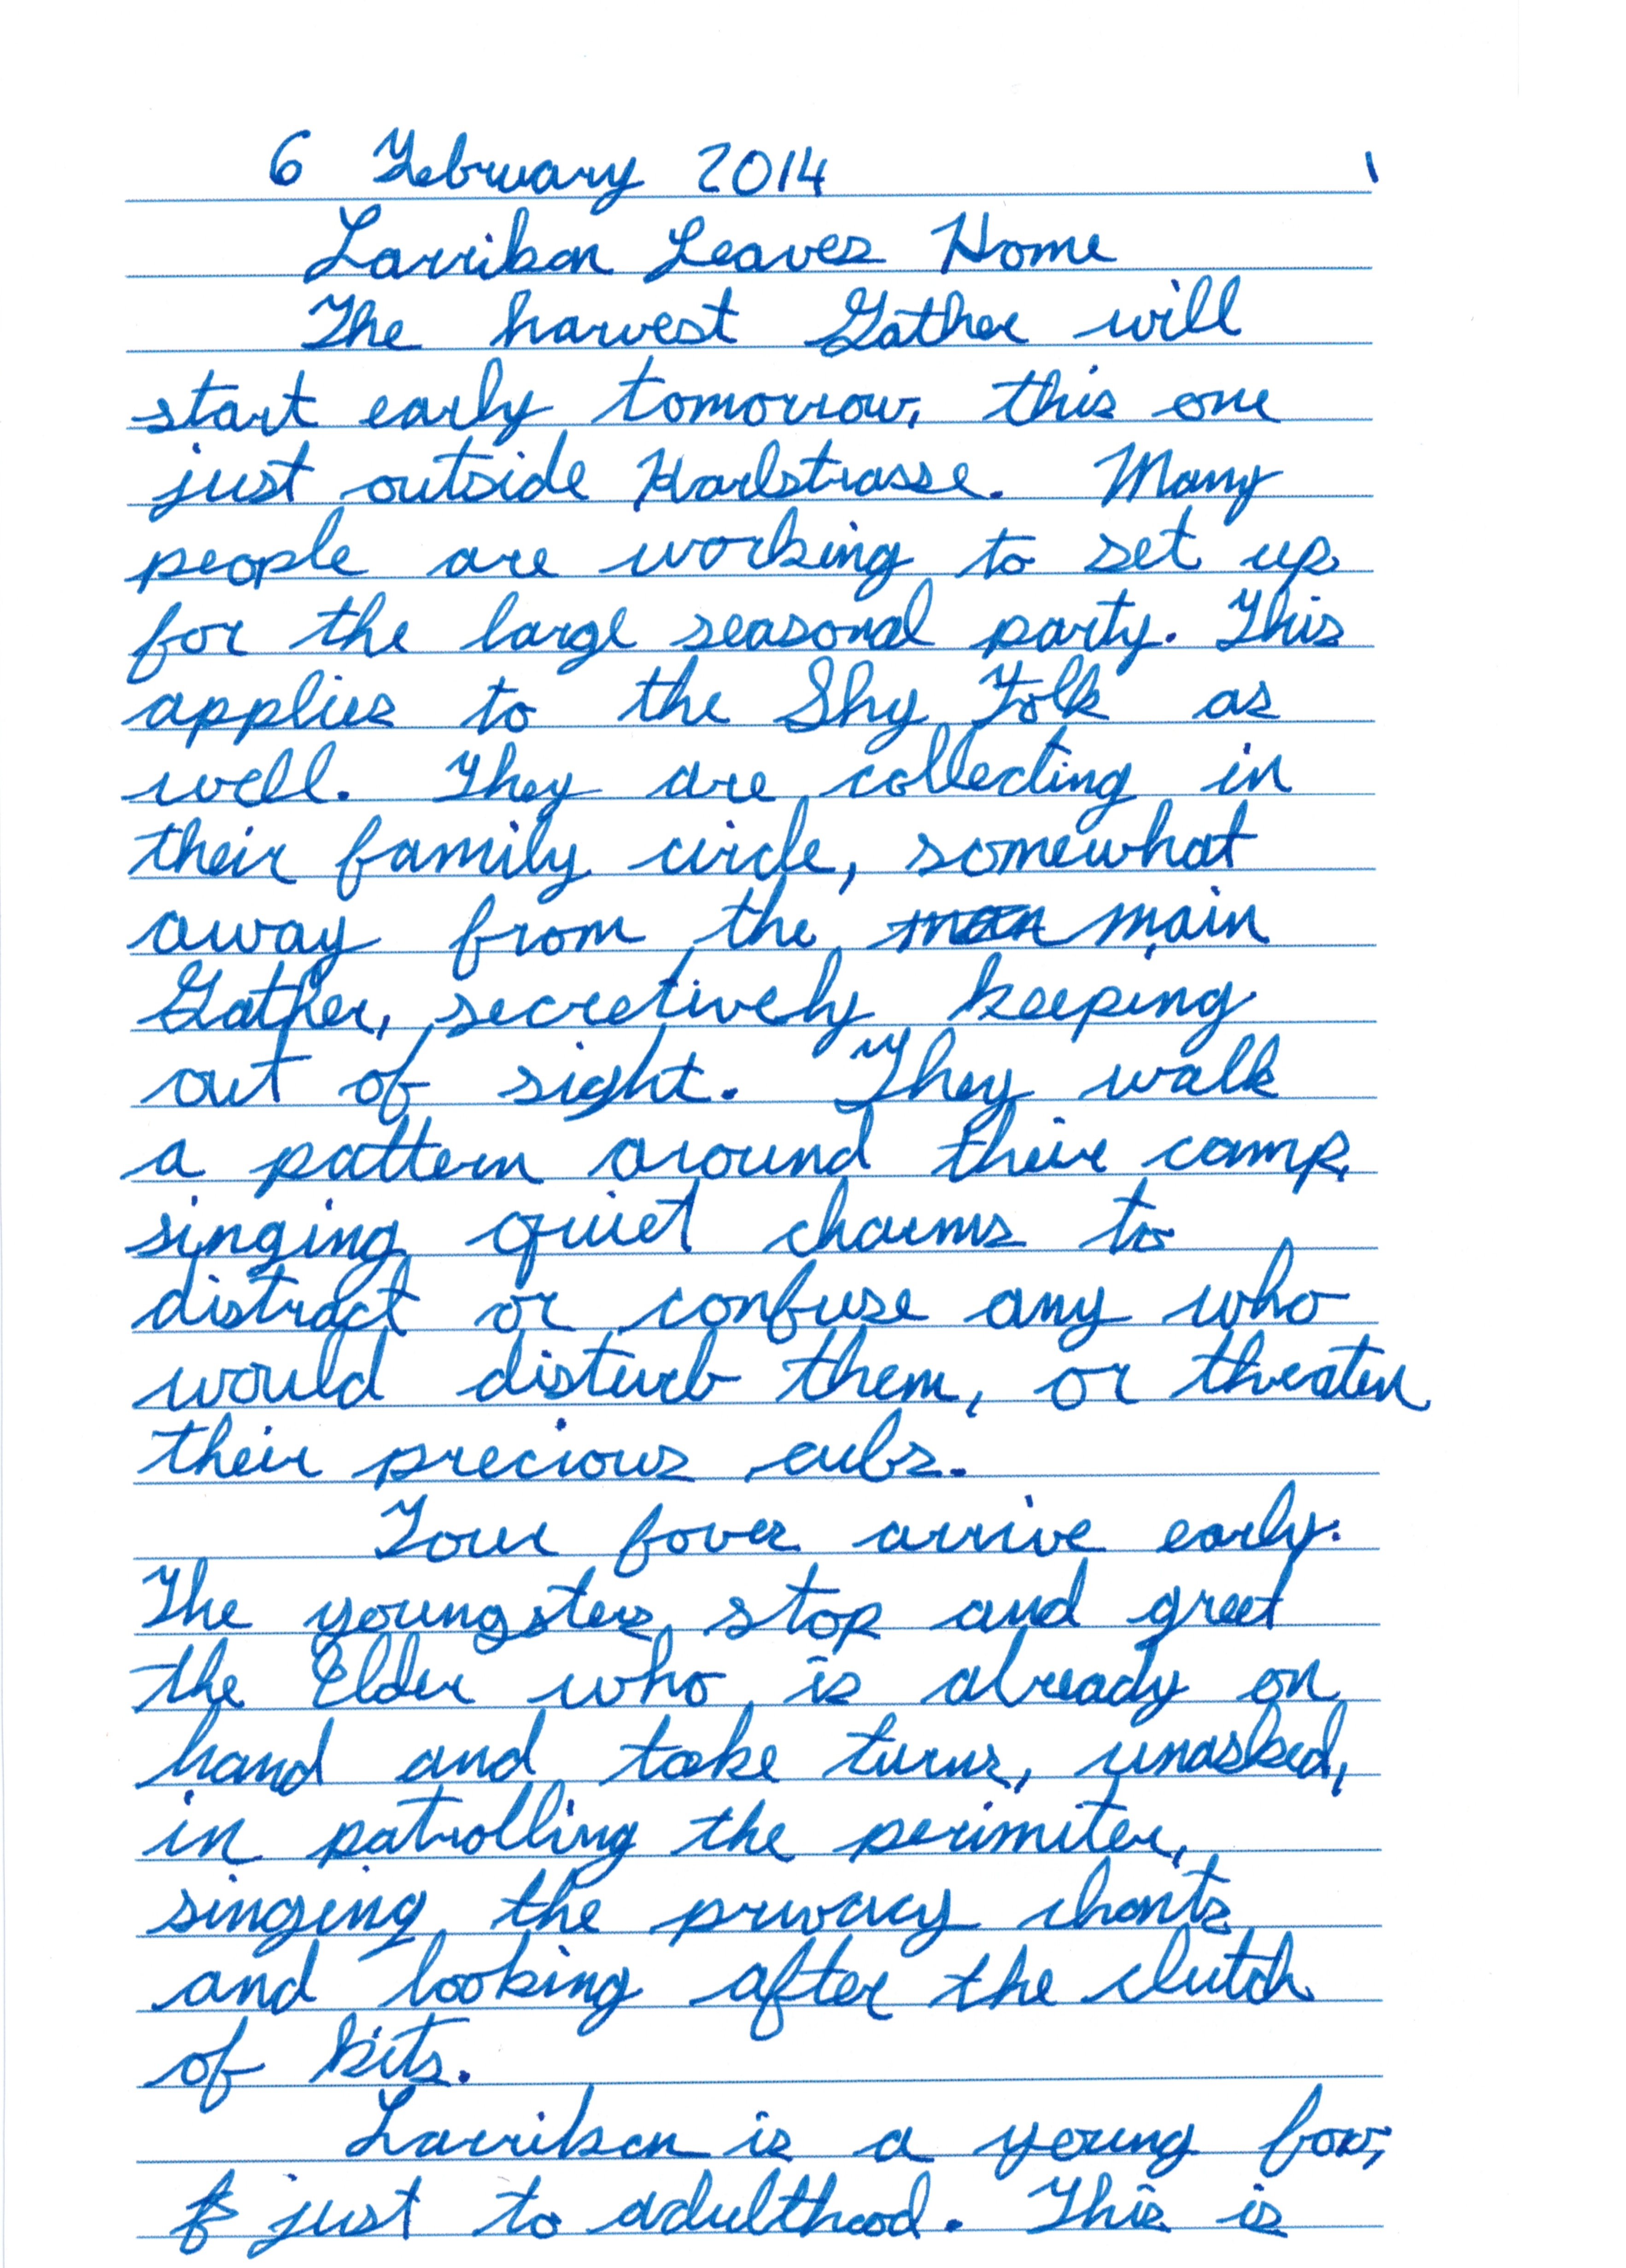 6 February 2014 1
Larrikan Leaves Home
The harvest Gather will
start early tomorrow, this one
just outside Karlstrasse. Many
people are working to set up
for the large seasonal party. This
applies to the Shy Folk as
well. They are collecting in
their family circle, somewhat
away from the main
Gather, secretively keeping
out of sight. They walk
a pattern around their camp,
singing quiet charms to
distract or confuse any who
would disturb them, or threaten
their precious cubs.
Four foxes arrive early.
The youngsters stop and greet
the Elder who is already on
hand and take turns, unasked,
in patrolling the perimiter,
singing the privacy chants
and looking after the clutch
of kits.
Larrikan is a young fox,
just to adulthood. This is